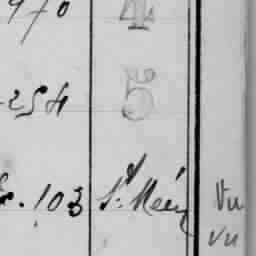 970 4
254 5
103 St Méen Vu
Vu